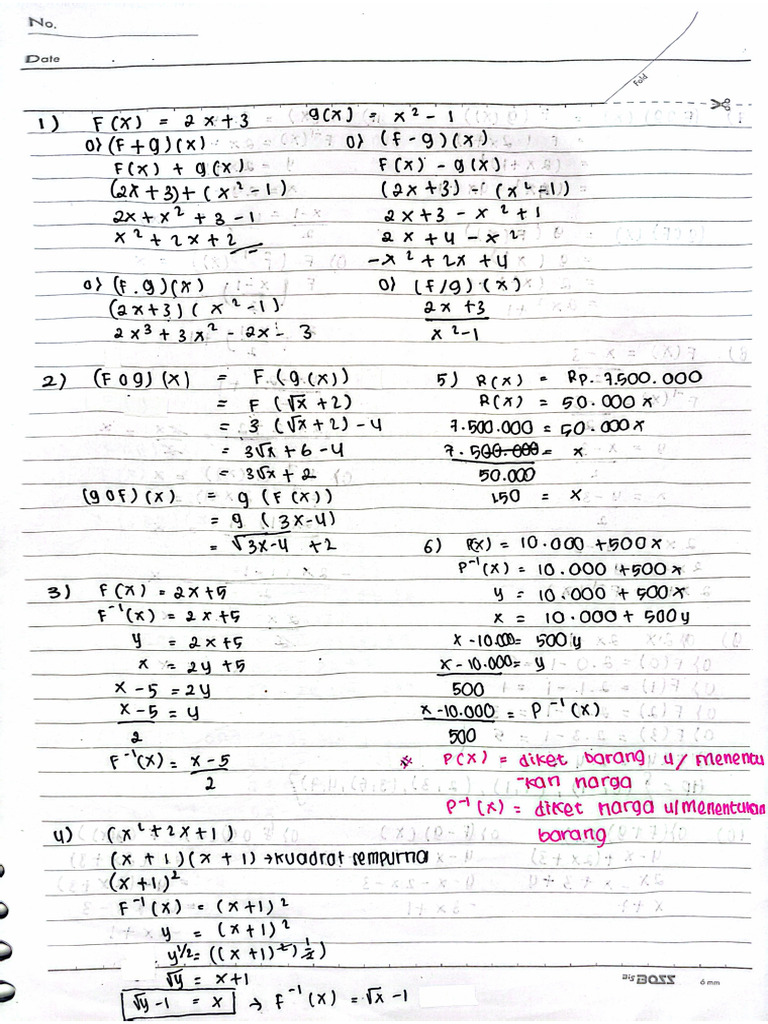 No.
Date
Fold
1) F(x) = 2x+3 g(x) = x² - 1
o) (F+g)(x)
F(x) + g(x)
(2x+3)+(x²-1)
2x+x²+3-1
x²+2x+2
o) (F-g)(x)
F(x) - g(x)
(2x+3) - (x²-1)
2x+3 - x²+1
2x+4-x²
-x²+2x+4
o) (F.g)(x)
(2x+3)(x²-1)
2x³+3x²-2x-3
o) (F/g).(x)
2x+3
x²-1
2) (Fog)(x) = F(g(x))
= F(√x+2)
= 3(√x+2)-4
= 3√x+6-4
= 3√x+2
(goF)(x) = g(F(x))
= g(3x-4)
= √3x-4 +2
3) F(x) = 2x+5
F⁻¹(x) = 2x+5
y = 2x+5
x = 2y+5
x-5 = 2y
x-5 = y
2
F⁻¹(x) = x-5
2
4) (x²+2x+1)
(x+1)(x+1) →kuadrat sempurna
(x+1)²
F⁻¹(x) = (x+1)²
y = (x+1)²
y½ = ((x+1)²)½)
√y = x+1
√y-1 = x → F⁻¹(x) = √x-1
5) R(x) = Rp.7.500.000
R(x) = 50.000x
7.500.000 = 50.000x
7.500.000 = x
50.000
150 = x
6) P(x) = 10.000+500x
P⁻¹(x) = 10.000+500x
y = 10.000+500x
x = 10.000+500y
x-10.000 = 500y
x-10.000 = y
500
x-10.000 = P⁻¹(x)
500
* P(x) = diket barang u/ menentu
-kan harga
P⁻¹(x) = diket harga u/menentukan
barang
BIG BOSS 6mm